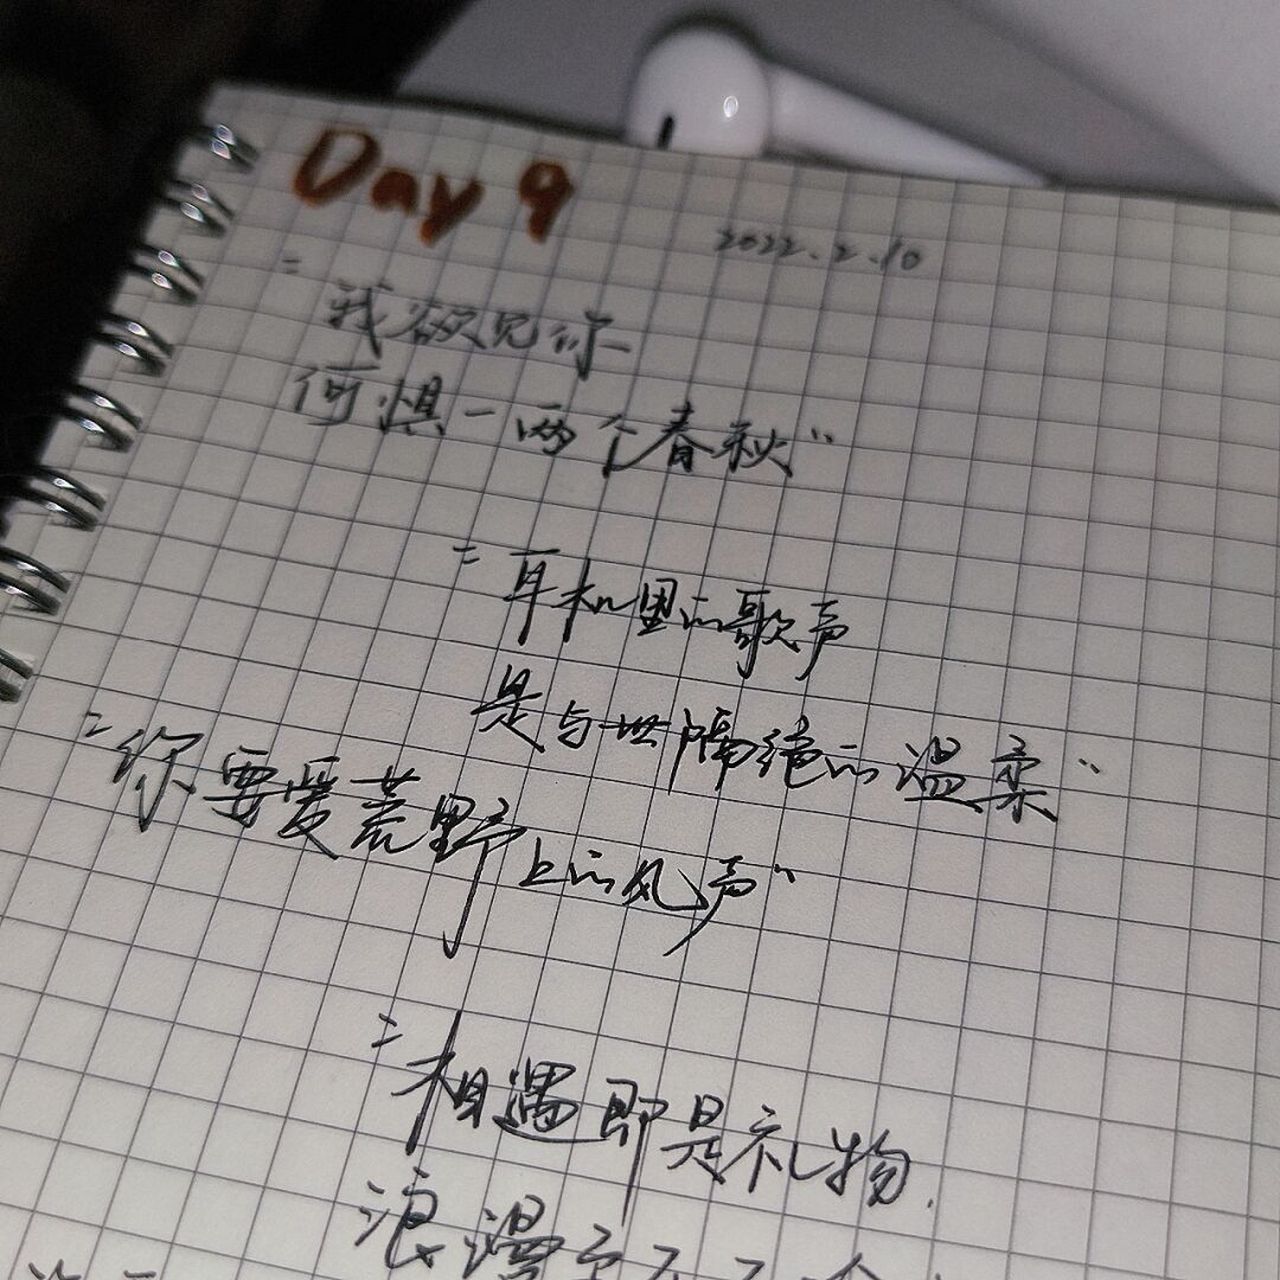 Day 9
2022.2.10
"我欲见你
何惧一两个春秋"
"耳机里的歌声
是与世隔绝的温柔"
"你要爱荒野上的风声"
"相遇即是礼物.
浪漫至不